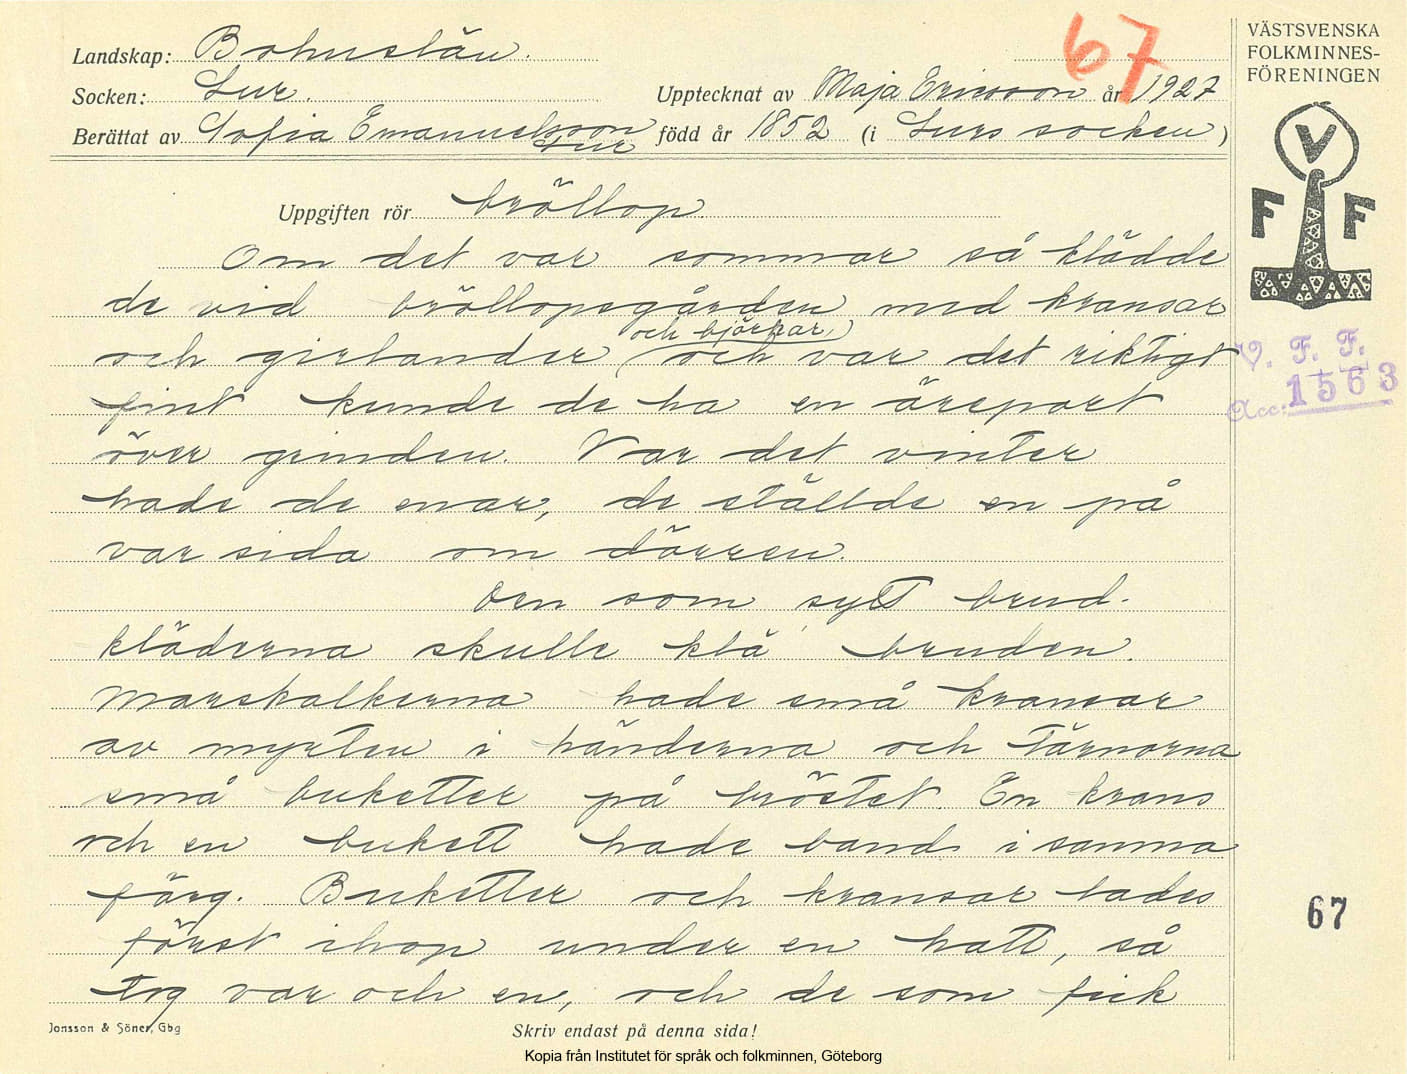 Landskap: Bohuslän.
Socken: Lur.
Berättat av Sofia Emanuelsson
Lur
67
Upptecknat av Maja Ericsson år 1927
född år 1852 (i Lurs socken)
VÄSTSVENSKA
FOLKMINNES-
FÖRENINGEN
V
F F
Uppgiften rör bröllop.
Om det var sommar så klädde
de vid bröllopsgården med kransar
och björkar
och girlander, och var det riktigt
fint kunde de ha en äreport
över grinden. Var det vinter
hade de enar, de ställde en på
var sida om dörren.
Den som sytt brud-
kläderna skulle klä bruden.
Marskalkerna hade små kransar
av myrten i händerna och tärnorna
små buketter på bröstet. En krans
och en bukett hade band i samma
färg. Buketter och kransar lades
först ihop under en hatt, så
tog var och en, och de som fick
V. F. F.
Acc. 1563
67
Jonsson & Söner, Gbg
Skriv endast på denna sida!
Kopia från Institutet för språk och folkminnen, Göteborg